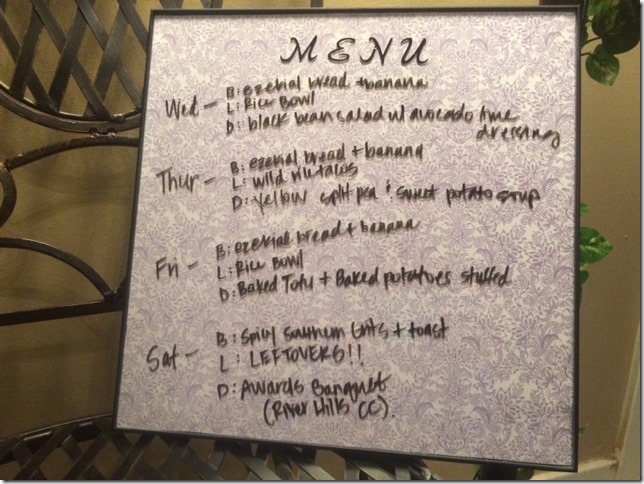 MENU
B: ezekial bread + banana
Wed - L: Rice Bowl
D: black bean salad w/ avocado lime
dressing
B: ezekial bread + banana
Thur - L: wild
D: Yellow split pea & sweet potato soup
B: ezekial bread + banana
Fri - L: Rice Bowl
D: Baked Tofu + Baked potatoes stuffed
B: Spicy Southern Grits + toast
Sat - L: LEFTOVERS!!
D: Awards Banquet
(River Hills CC).